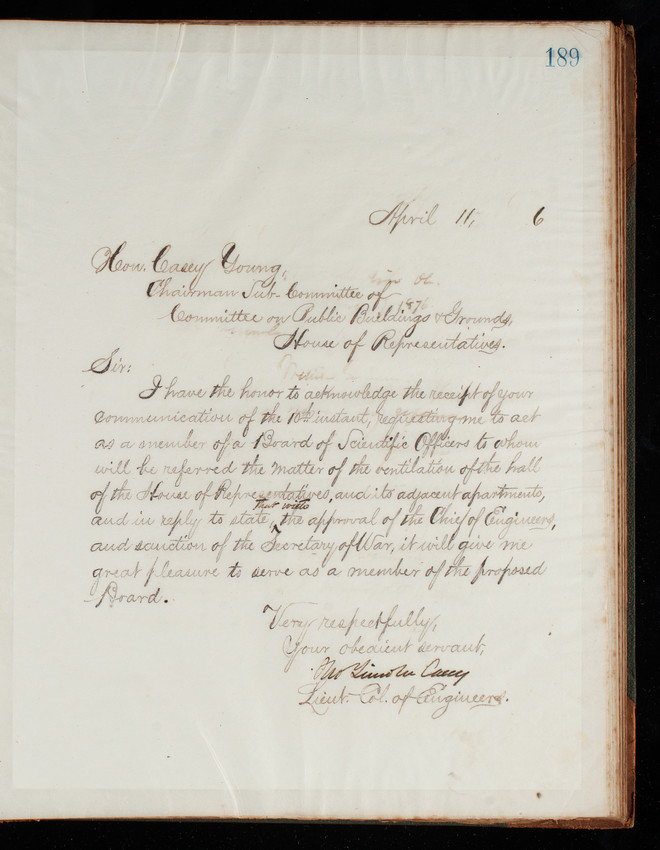 189
April 11, 6
Hon. Casey Young,
Chairman Sub-Committee of
1876
Committee on Public Buildings & Grounds,
House of Representatives.
Sir:
I have the honor to acknowledge the receipt of your
communication of the 10th instant, requesting me to act
as a member of a Board of Scientific Officers to whom
will be referred the matter of the ventilation of the hall
of the House of Representatives, and its adjacent apartments,
that with
and in reply to state, the approval of the Chief of Engineers,
and sanction of the Secretary of War, it will give me
great pleasure to serve as a member of the proposed
Board.
Very respectfully,
Your obedient servant,
Thos Lincoln Casey
Lieut. Col. of Engineers.